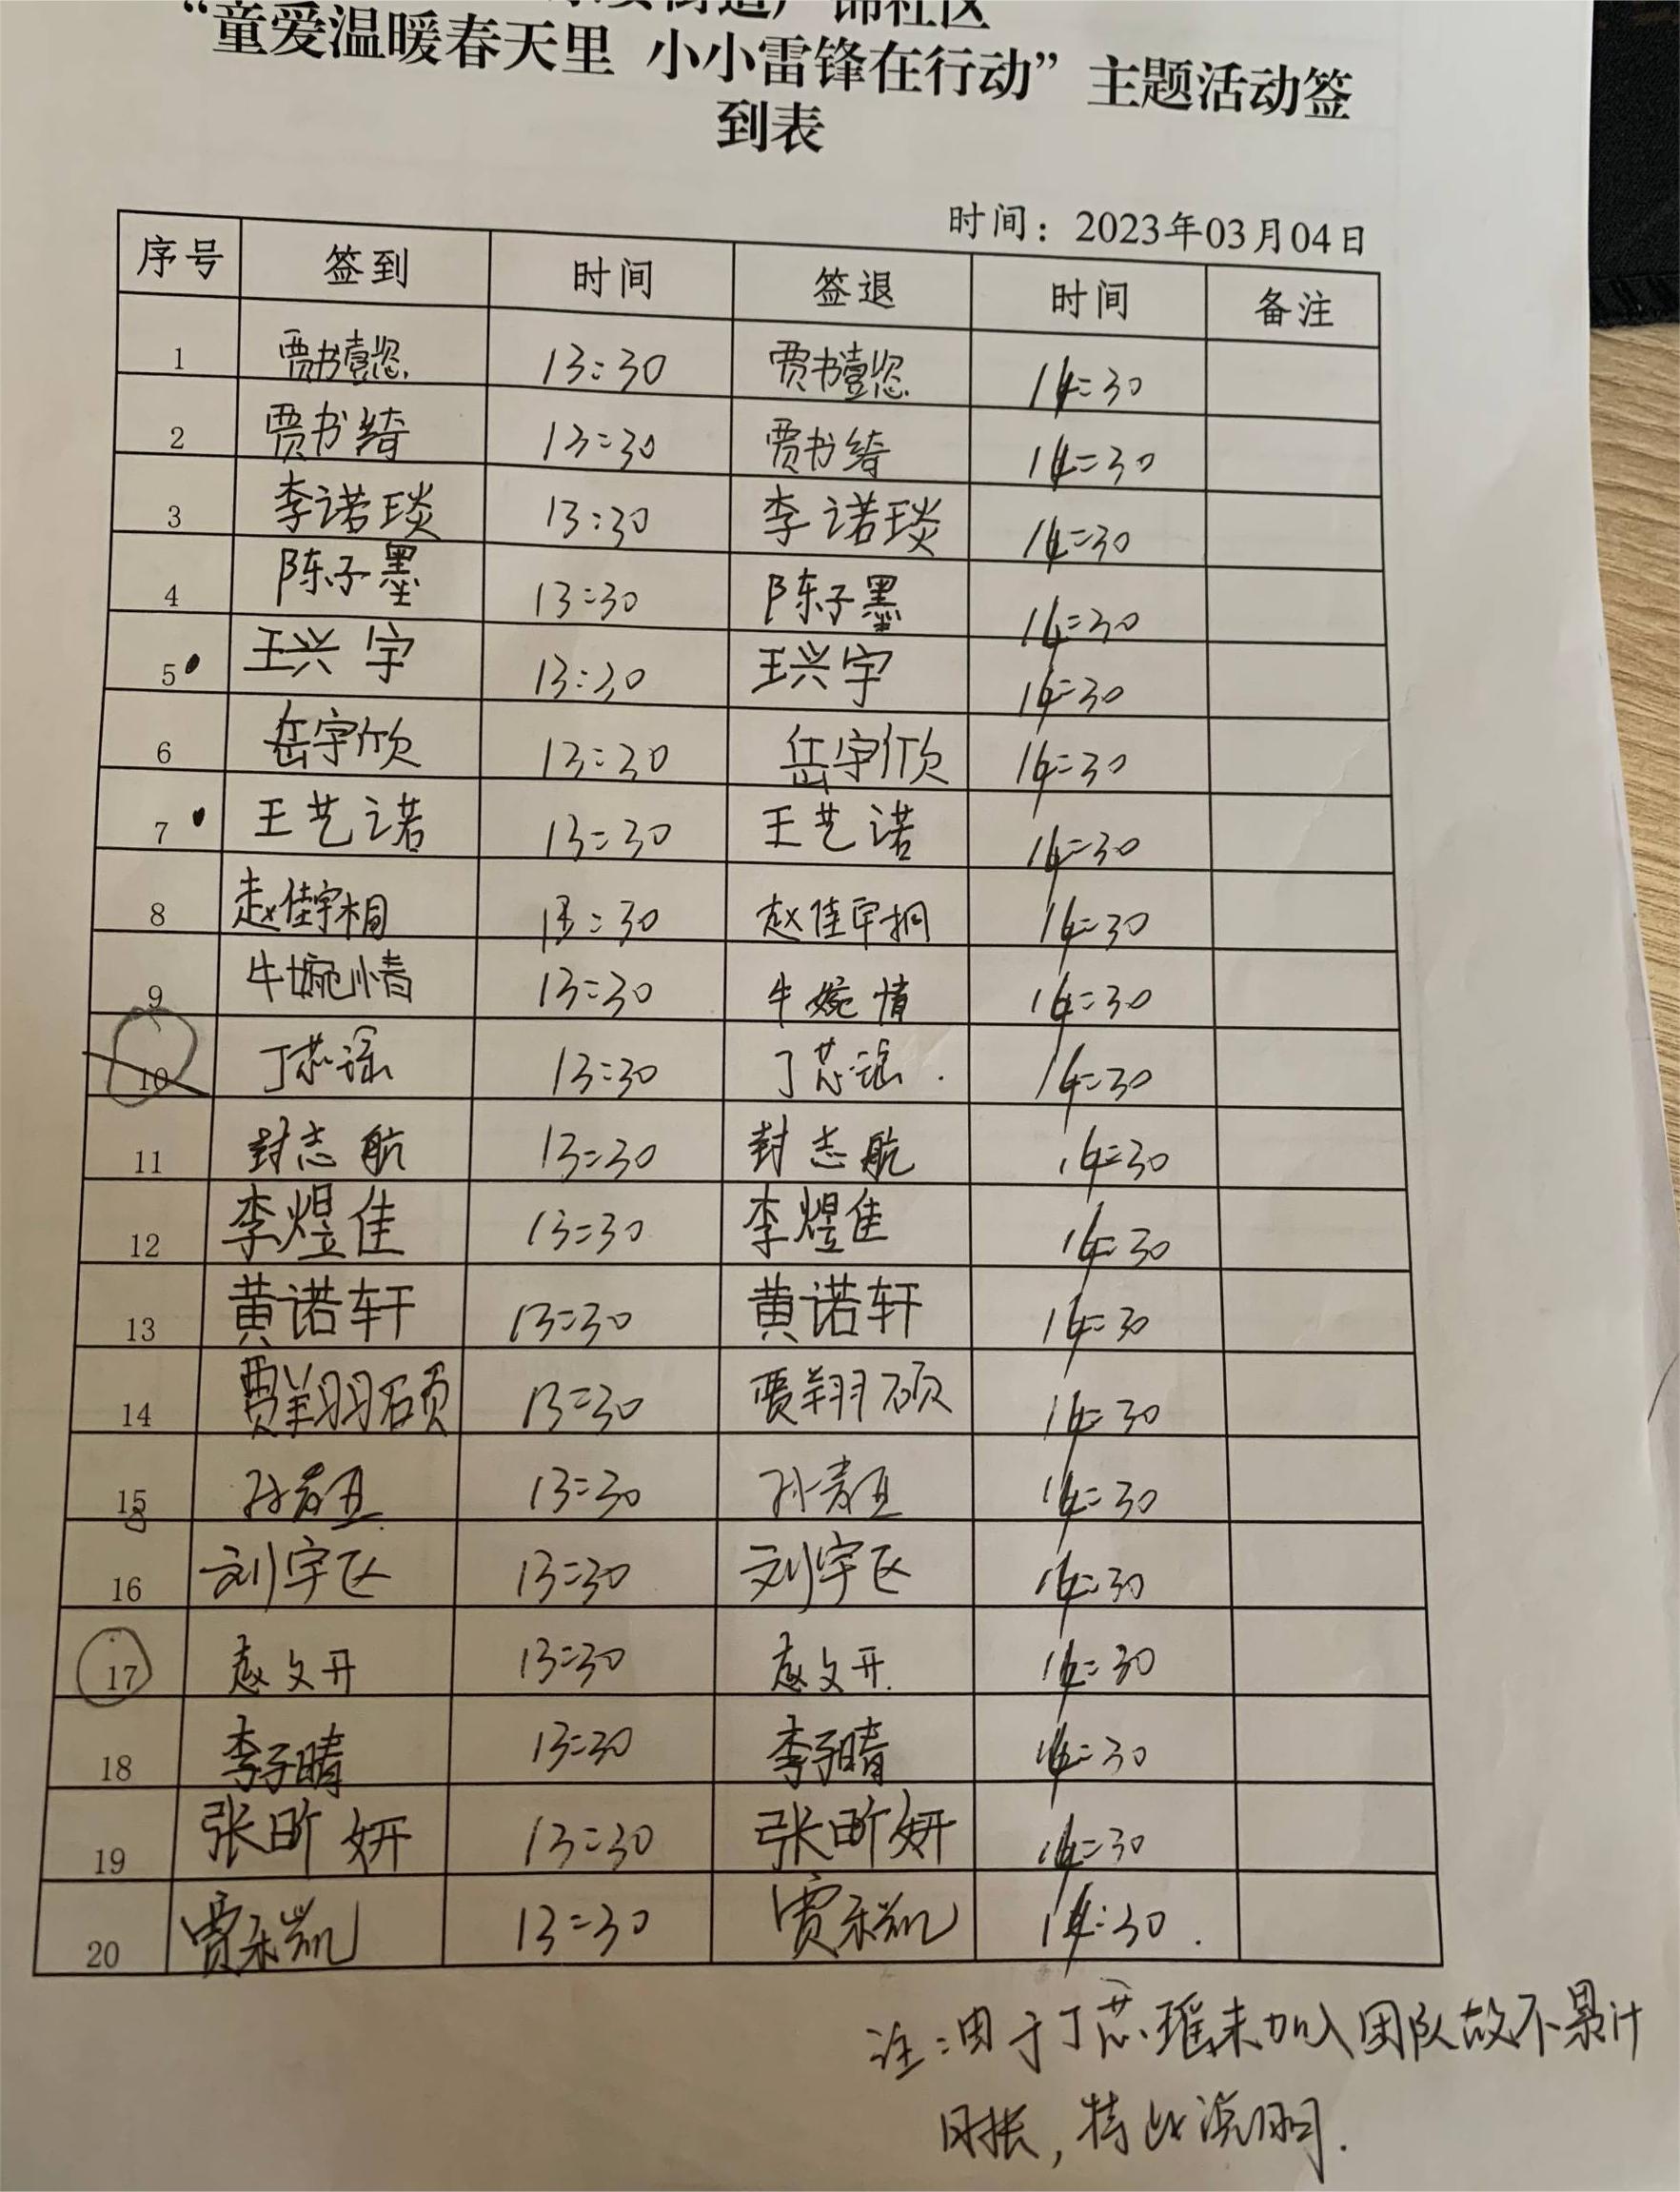 锦社区
“童爱温暖春天里 小小雷锋在行动”主题活动签
到表
时间：2023年03月04日
序号 签到 时间 签退 时间 备注
1 贾书懿 13:30 贾书懿 14:30
2 贾书绮 13:30 贾书绮 14:30
3 李诺琰 13:30 李诺琰 14:30
4 陈子墨 13:30 陈子墨 14:30
5 王兴宇 13:30 王兴宇 14:30
6 岳宇欣 13:30 岳宇欣 14:30
7 王艺诺 13:30 王艺诺 14:30
8 赵佳宇桐 13:30 赵佳宇桐 14:30
9 牛婉情 13:30 牛婉情 14:30
10 丁芯瑶 13:30 丁芯瑶 14:30
11 封志航 13:30 封志航 14:30
12 李煜佳 13:30 李煜佳 14:30
13 黄诺轩 13:30 黄诺轩 14:30
14 贾翔硕 13:30 贾翔硕 14:30
15 13:30 14:30
16 刘宇飞 13:30 刘宇飞 14:30
17 赵文开 13:30 赵文开 14:30
18 李子晴 13:30 李子晴 14:30
19 张昕妍 13:30 张昕妍 14:30
20 贾禾凯 13:30 贾禾凯 14:30
注：由于丁芯瑶未加入团队故不累计
时长，特此说明.